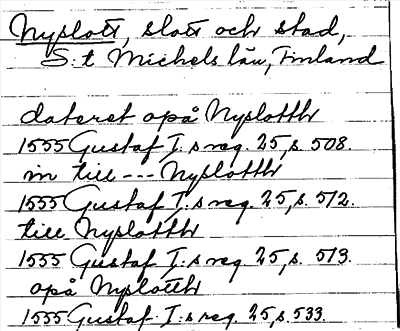 Nyslott, slott och stad,
S:t Michels län, Finland
dateret opå Nyslotth
1555 Gustaf I:s reg. 25, s. 508.
in till --- Nyslotth
1555 Gustaf I:s reg. 25, s. 512.
till Nyslotth
1555 Gustaf I:s reg. 25, s. 513.
opå Nyslotth
1555 Gustaf I:s reg. 25, s. 533.